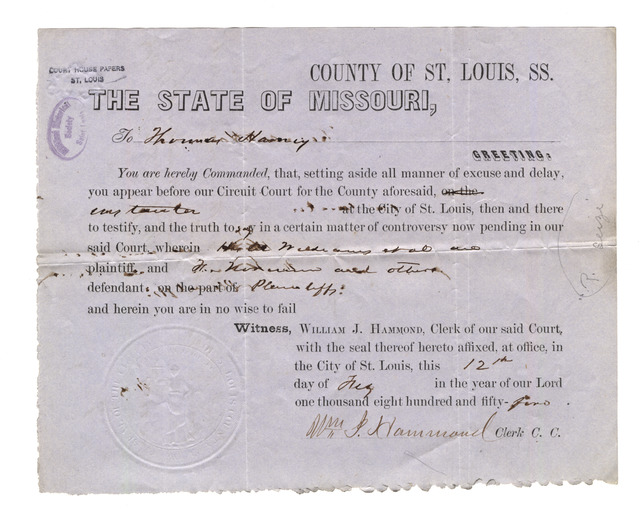 COURT HOUSE PAPERS
ST. LOUIS
COUNTY OF ST. LOUIS, SS.
THE STATE OF MISSOURI,
To Thomas Harvey
GREETING:
You are hereby Commanded, that, setting aside all manner of excuse and delay,
you appear before our Circuit Court for the County aforesaid, on the
instanter at the City of St. Louis, then and there
to testify, and the truth to say in a certain matter of controversy now pending in our
said Court, wherein Williams et al are
plaintiff and and others
defendant on the part of Plaintiffs:
and herein you are in no wise to fail
Witness, WILLIAM J. HAMMOND, Clerk of our said Court,
with the seal thereof hereto affixed, at office, in
the City of St. Louis, this 12th
day of in the year of our Lord
one thousand eight hundred and fifty-
Wm J. Hammond Clerk C. C.